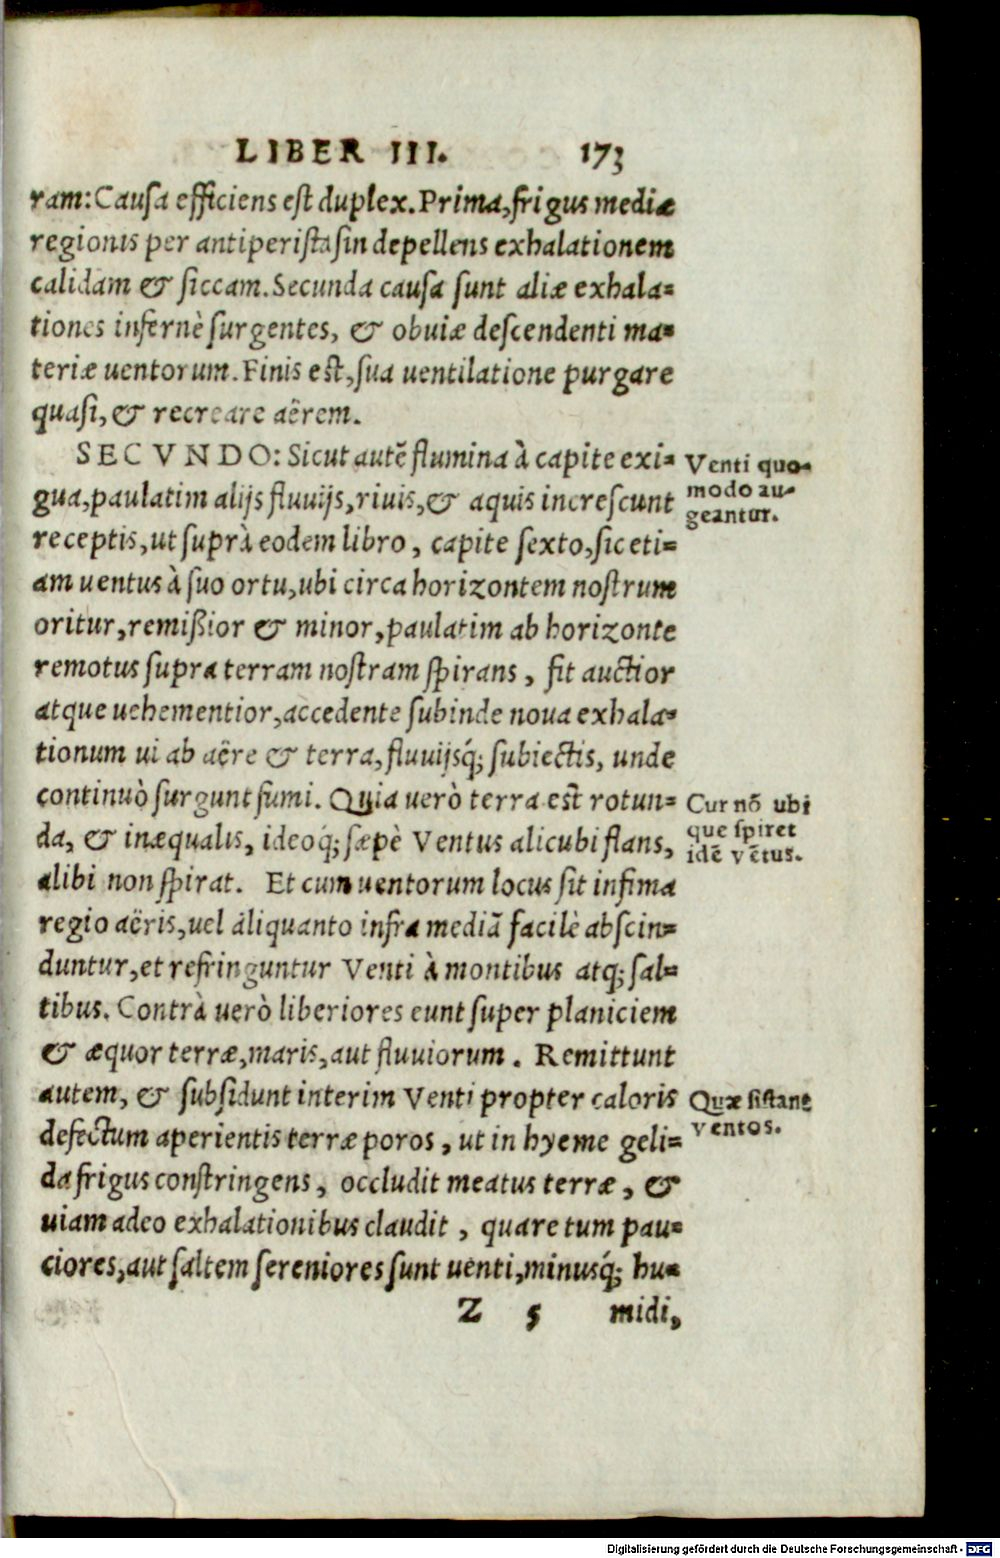 LIBER III. 173
ram: Cauſa efficiens eſt duplex. Prima, frigus mediæ
regionis per antiperiſtaſin depellens exhalationem
calidam & ſiccam. Secunda cauſa ſunt aliæ exhala-
tiones infernè ſurgentes, & obuiæ deſcendenti ma-
teriæ uentorum. Finis eſt, ſua uentilatione purgare
quaſi, & recreare aërem.
SECVNDO: Sicut autẽ flumina à capite exi-
gua, paulatim alijs fluuijs, riuis, & aquis increſcunt
receptis, ut ſuprà eodem libro, capite ſexto, ſic eti-
am uentus à ſuo ortu, ubi circa horizontem noſtrum
oritur, remißior & minor, paulatim ab horizonte
remotus ſupra terram noſtram ſpirans, fit auctior
atque uehementior, accedente ſubinde noua exhala-
tionum ui ab aëre & terra, fluuijsq́; ſubiectis, unde
continuò ſurgunt fumi. Quia uerò terra eſt rotun-
da, & inæqualis, ideoq́; ſæpè Ventus alicubi flans,
alibi non ſpirat. Et cum uentorum locus ſit infima
regio aëris, uel aliquanto infra mediã facilè abſcin-
duntur, et refringuntur Venti à montibus atq; ſal-
tibus. Contrà uerò liberiores eunt ſuper planiciem
& æquor terræ, maris, aut fluuiorum. Remittunt
autem, & ſubſidunt interim Venti propter caloris
defectum aperientis terræ poros, ut in hyeme geli-
da frigus conſtringens, occludit meatus terræ, &
uiam adeo exhalationibus claudit, quare tum pau-
ciores, aut ſaltem ſereniores ſunt uenti, minusq́; hu-
Z 5 midi,
Venti quo-
modo au-
geantur.
Cur nõ ubi
que ſpiret
idẽ vẽtus.
Quæ ſiſtant
ventos.
Digitalisierung gefördert durch die Deutsche Forschungsgemeinschaft - DFG